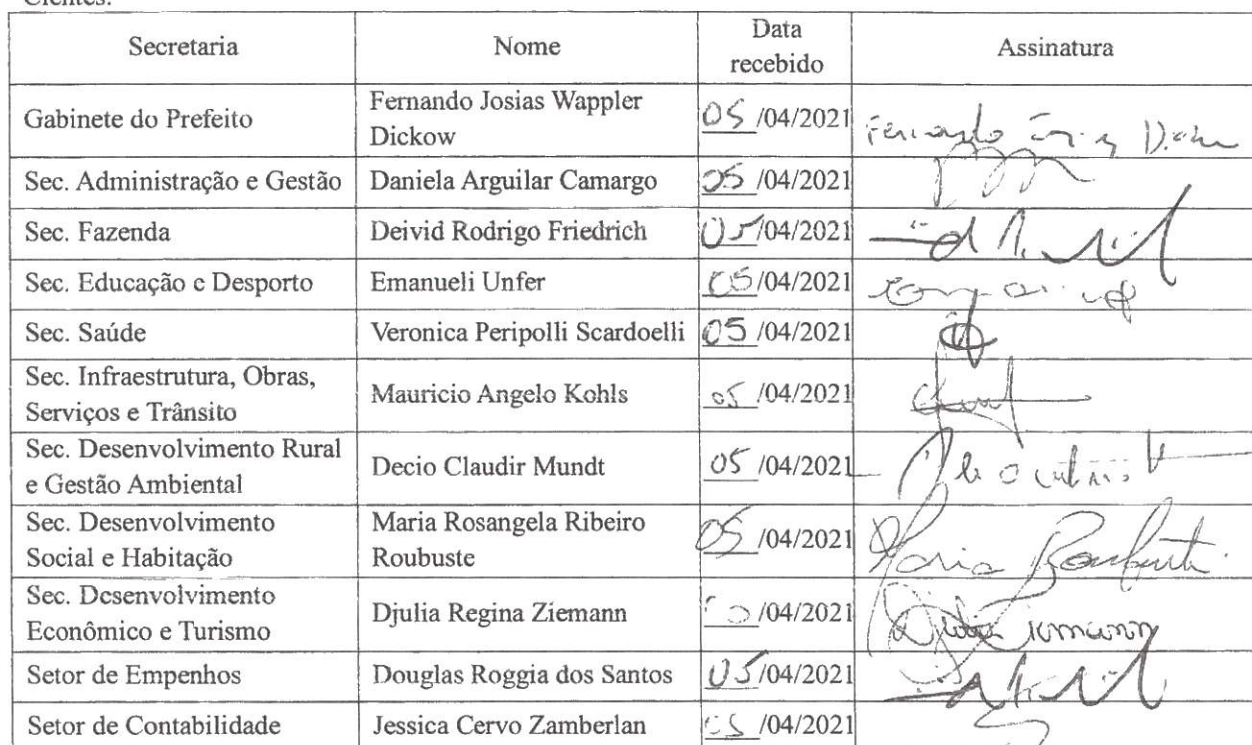 Cientes:
Secretaria Nome Data recebido Assinatura
Gabinete do Prefeito Fernando Josias Wappler Dickow 05/04/2021 Fernando
Sec. Administração e Gestão Daniela Arguilar Camargo 05/04/2021
Sec. Fazenda Deivid Rodrigo Friedrich 05/04/2021
Sec. Educação e Desporto Emanueli Unfer 05/04/2021
Sec. Saúde Veronica Peripolli Scardoelli 05/04/2021
Sec. Infraestrutura, Obras, Serviços e Trânsito Mauricio Angelo Kohls 05/04/2021
Sec. Desenvolvimento Rural e Gestão Ambiental Decio Claudir Mundt 05/04/2021
Sec. Desenvolvimento Social e Habitação Maria Rosangela Ribeiro Roubuste 05/04/2021 Maria Roubuste
Sec. Desenvolvimento Econômico e Turismo Djulia Regina Ziemann /04/2021 Djulia Ziemann
Setor de Empenhos Douglas Roggia dos Santos 05/04/2021
Setor de Contabilidade Jessica Cervo Zamberlan 05/04/2021